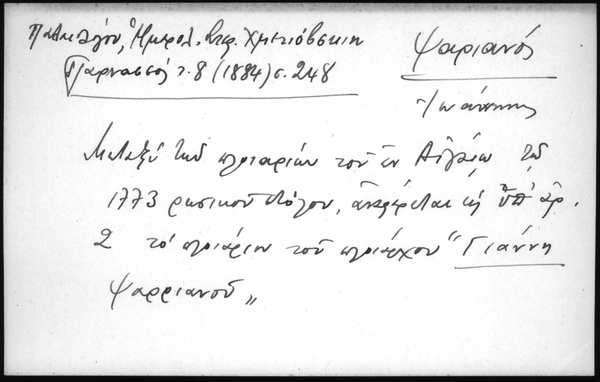 Παλαιολόγου, Ἡμερολ. Στεφ. Χμετιόβσκιη
Παρνασσός τ. 8 (1884) σ. 248
Ψαριανός
Ἰωάννης
Μεταξύ τῶν πλοιαρίων τοῦ ἐν Αἰγαίῳ τῷ
1773 ρωσικοῦ στόλου, ἀναφέρεται ὡς ὑπ' ἀρ.
2 τό πλοιάριον τοῦ πλοιάρχου "Γιάννη
Ψαρριανοῦ"